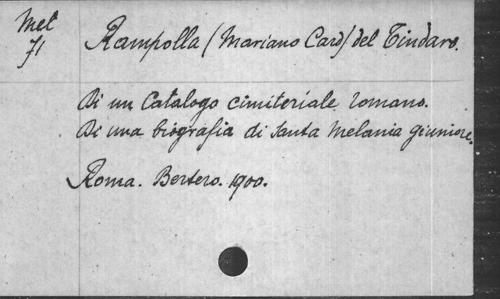 Mel
71
Rampolla (Mariano Card) del Tindaro.
Di un Catalogo cimiteriale romano.
Di una biografia di santa Melania giuniore.
Roma. Bertero. 1900.